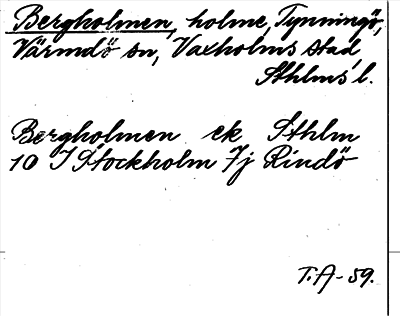 Bergholmen, holme, Tynningö,
Värmdö sn, Vaxholms stad,
Sthlms l.
Bergholmen ek Sthlm
10 I Stockholm 7j Rindö
T.A-59.